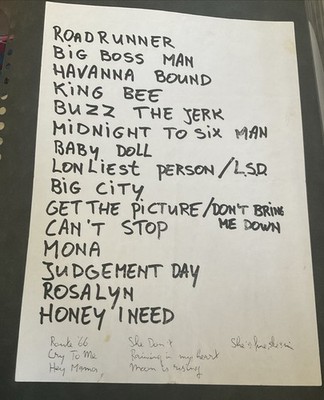 ROADRUNNER
BIG BOSS MAN
HAVANNA BOUND
KING BEE
BUZZ THE JERK
MIDNIGHT TO SIX MAN
BABY DOLL
LONLIEST PERSON/L.S.D.
BIG CITY
GET THE PICTURE/DON'T BRING
CAN'T STOP ME DOWN
MONA
JUDGEMENT DAY
ROSALYN
HONEY I NEED
Route 66 She Don't
Cry To Me Raining in my heart
Hey Mama,